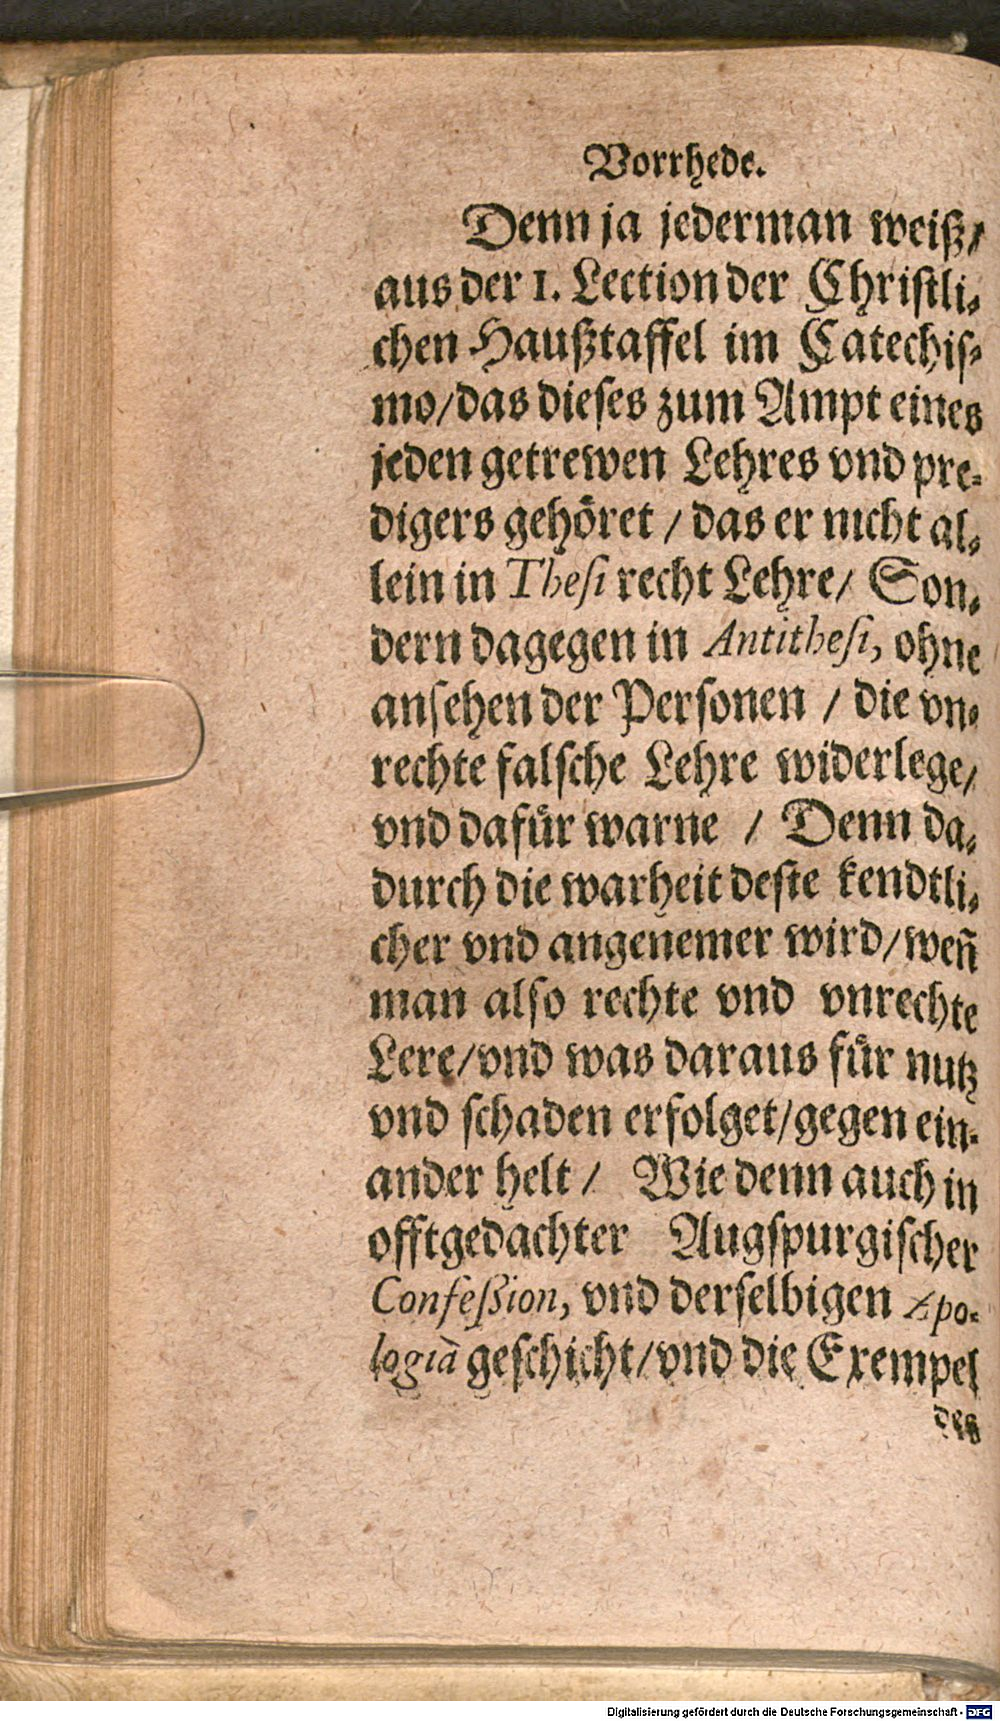 Vorrhede.
Denn ja jederman weiß/
aus der 1. Lection der Christli-
chen Haußtaffel im Catechis-
mo/das dieses zum Ampt eines
jeden getrewen Lehres vnd pre-
digers gehöret / das er nicht al-
lein in Thesi recht Lehre/ Son-
dern dagegen in Antithesi, ohne
ansehen der Personen / die vn-
rechte falsche Lehre widerlege/
vnd dafür warne / Denn da-
durch die warheit deste kendtli-
cher vnd angenemer wird/weñ
man also rechte vnd vnrechte
Lere/vnd was daraus für nutz
vnd schaden erfolget/gegen ein-
ander helt / Wie denn auch in
offtgedachter Augspurgischer
Confeßion, vnd derselbigen Apo-
logiâ geschicht/vnd die Exempel
des
Digitalisierung gefördert durch die Deutsche Forschungsgemeinschaft - DFG